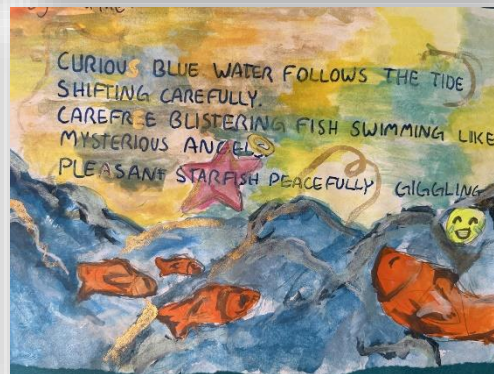 CURIOUS BLUE WATER FOLLOWS THE TIDE
SHIFTING CAREFULLY.
CAREFREE BLISTERING FISH SWIMMING LIKE
MYSTERIOUS ANGELS
PLEASANT STARFISH PEACEFULLY GIGGLING